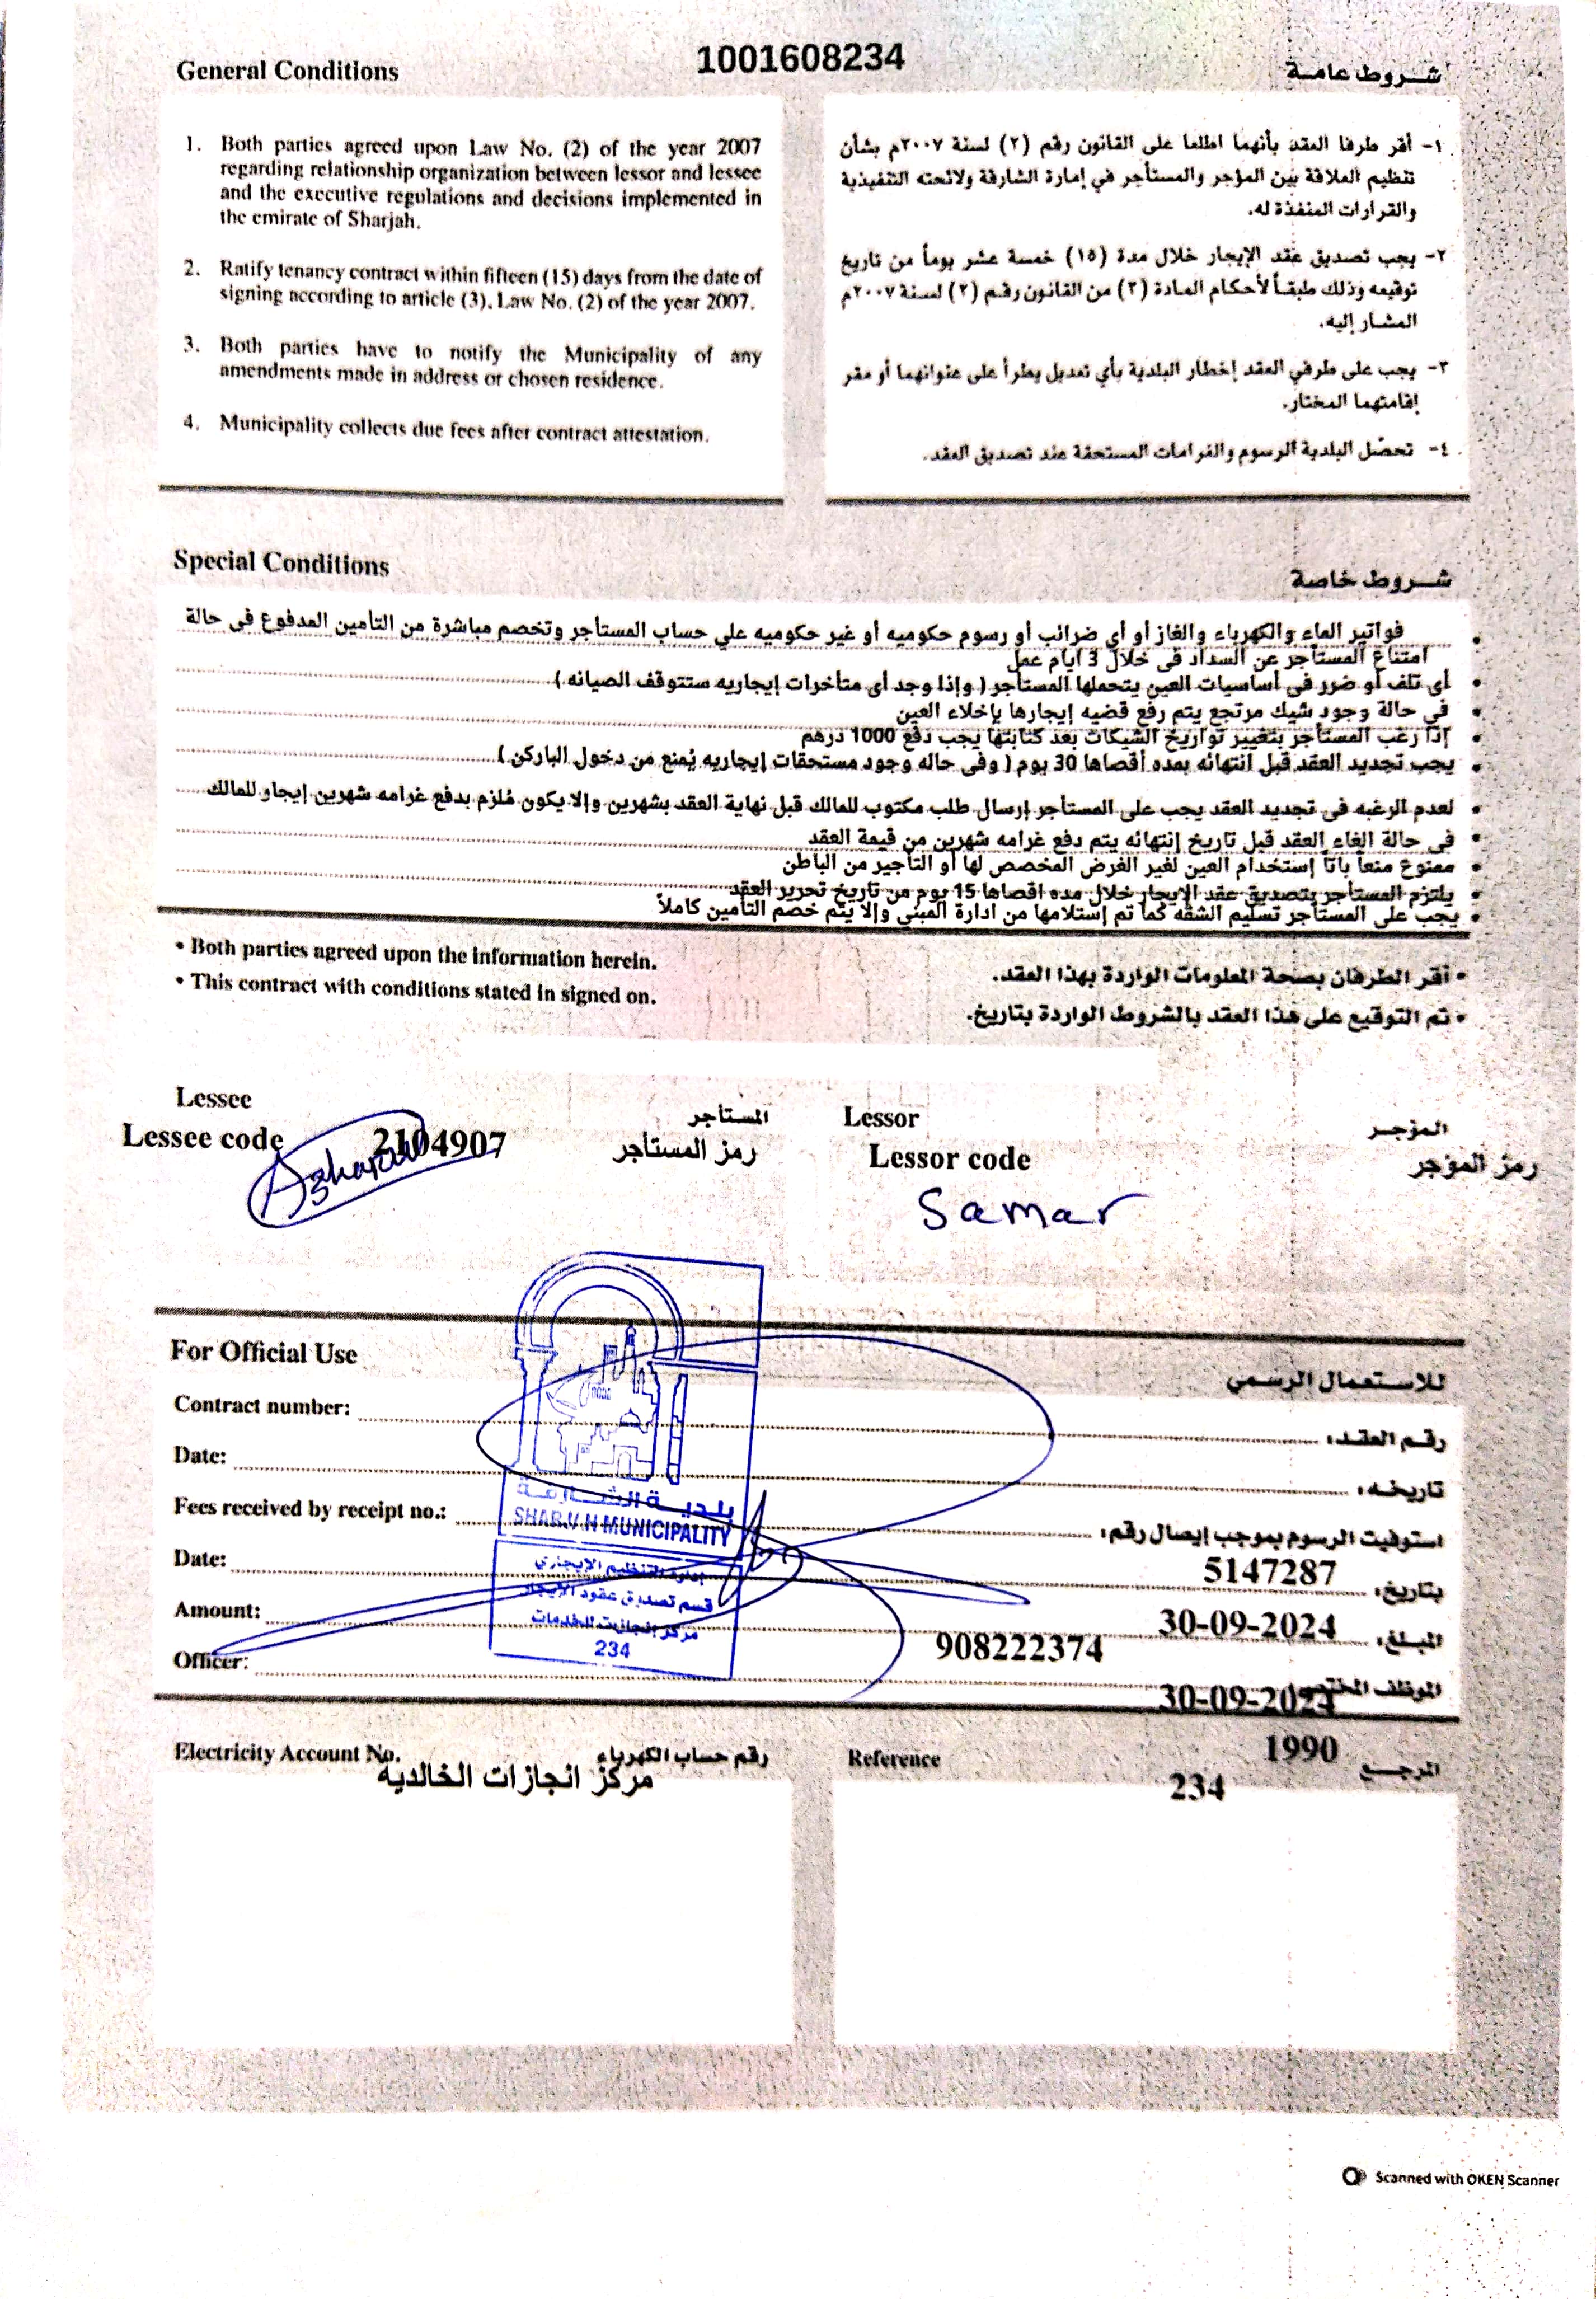 1001608234
General Conditions
شروط عامة
1. Both parties agreed upon Law No. (2) of the year 2007
regarding relationship organization between lessor and lessee
and the executive regulations and decisions implemented in
the emirate of Sharjah.
2. Ratify tenancy contract within fifteen (15) days from the date of
signing according to article (3), Law No. (2) of the year 2007.
3. Both parties have to notify the Municipality of any
amendments made in address or chosen residence.
4. Municipality collects due fees after contract attestation.
١- أقر طرفا العقد بأنهما اطلعا على القانون رقم (٢) لسنة ٢٠٠٧م بشأن
تنظيم العلاقة بين المؤجر والمستأجر في إمارة الشارقة ولائحته التنفيذية
والقرارات المنفذة له.
٢- يجب تصديق عقد الإيجار خلال مدة (١٥) خمسة عشر يوماً من تاريخ
توقيعه وذلك طبقاً لأحكام المادة (٣) من القانون رقم (٢) لسنة ٢٠٠٧م
المشار إليه.
٣- يجب على طرفي العقد إخطار البلدية بأي تعديل يطرأ على عنوانهما أو مقر
إقامتهما المختار.
٤- تحصّل البلدية الرسوم والغرامات المستحقة عند تصديق العقد.
Special Conditions
شروط خاصة
• فواتير الماء والكهرباء والغاز أو أي ضرائب أو رسوم حكوميه أو غير حكوميه علي حساب المستأجر وتخصم مباشرة من التأمين المدفوع فى حالة
امتناع المستأجر عن السداد فى خلال 3 أيام عمل
• أى تلف أو ضرر فى أساسيات العين يتحملها المستأجر ( وإذا وجد أى متأخرات إيجاريه ستتوقف الصيانه )
• في حالة وجود شيك مرتجع يتم رفع قضيه إيجارها بإخلاء العين
• إذا رغب المستأجر بتغيير تواريخ الشيكات بعد كتابتها يجب دفع 1000 درهم
• يجب تجديد العقد قبل انتهائه بمده أقصاها 30 يوم ( وفى حاله وجود مستحقات إيجاريه يُمنع من دخول الباركن )
• لعدم الرغبه فى تجديد العقد يجب على المستأجر إرسال طلب مكتوب للمالك قبل نهاية العقد بشهرين وإلا يكون مُلزم بدفع غرامه شهرين إيجار للمالك
• فى حالة الغاء العقد قبل تاريخ إنتهائه يتم دفع غرامه شهرين من قيمة العقد
• ممنوع منعاً باتاً إستخدام العين لغير الغرض المخصص لها أو التأجير من الباطن
• يلتزم المستأجر بتصديق عقد الإيجار خلال مده اقصاها 15 يوم من تاريخ تحرير العقد
• يجب على المستأجر تسليم الشقه كما تم إستلامها من ادارة المبنى وإلا يتم خصم التأمين كاملاً
• Both parties agreed upon the information herein.
• This contract with conditions stated in signed on.
• أقر الطرفان بصحة المعلومات الواردة بهذا العقد.
• تم التوقيع على هذا العقد بالشروط الواردة بتاريخ.
Lessee المستأجر Lessor المؤجر
Lessee code 2104907 رمز المستاجر Lessor code رمز المؤجر
Samar
For Official Use للاستعمال الرسمي
Contract number: رقم العقد:
Date: تاريخه:
Fees received by receipt no.: استوفيت الرسوم بموجب إيصال رقم:
5147287
Date: بتاريخ:
30-09-2024
Amount: المبلغ:
908222374
Officer: الموظف المختص
30-09-2024
بلدية الشارقة
MUNICIPALITY
إدارة التنظيم الإيجاري
قسم تصديق عقود الإيجار
مركز إنجازات للخدمات
234
Electricity Account No. رقم حساب الكهرباء
مركز انجازات الخالدية
Reference 1990 المرجع
234
Scanned with OKEN Scanner